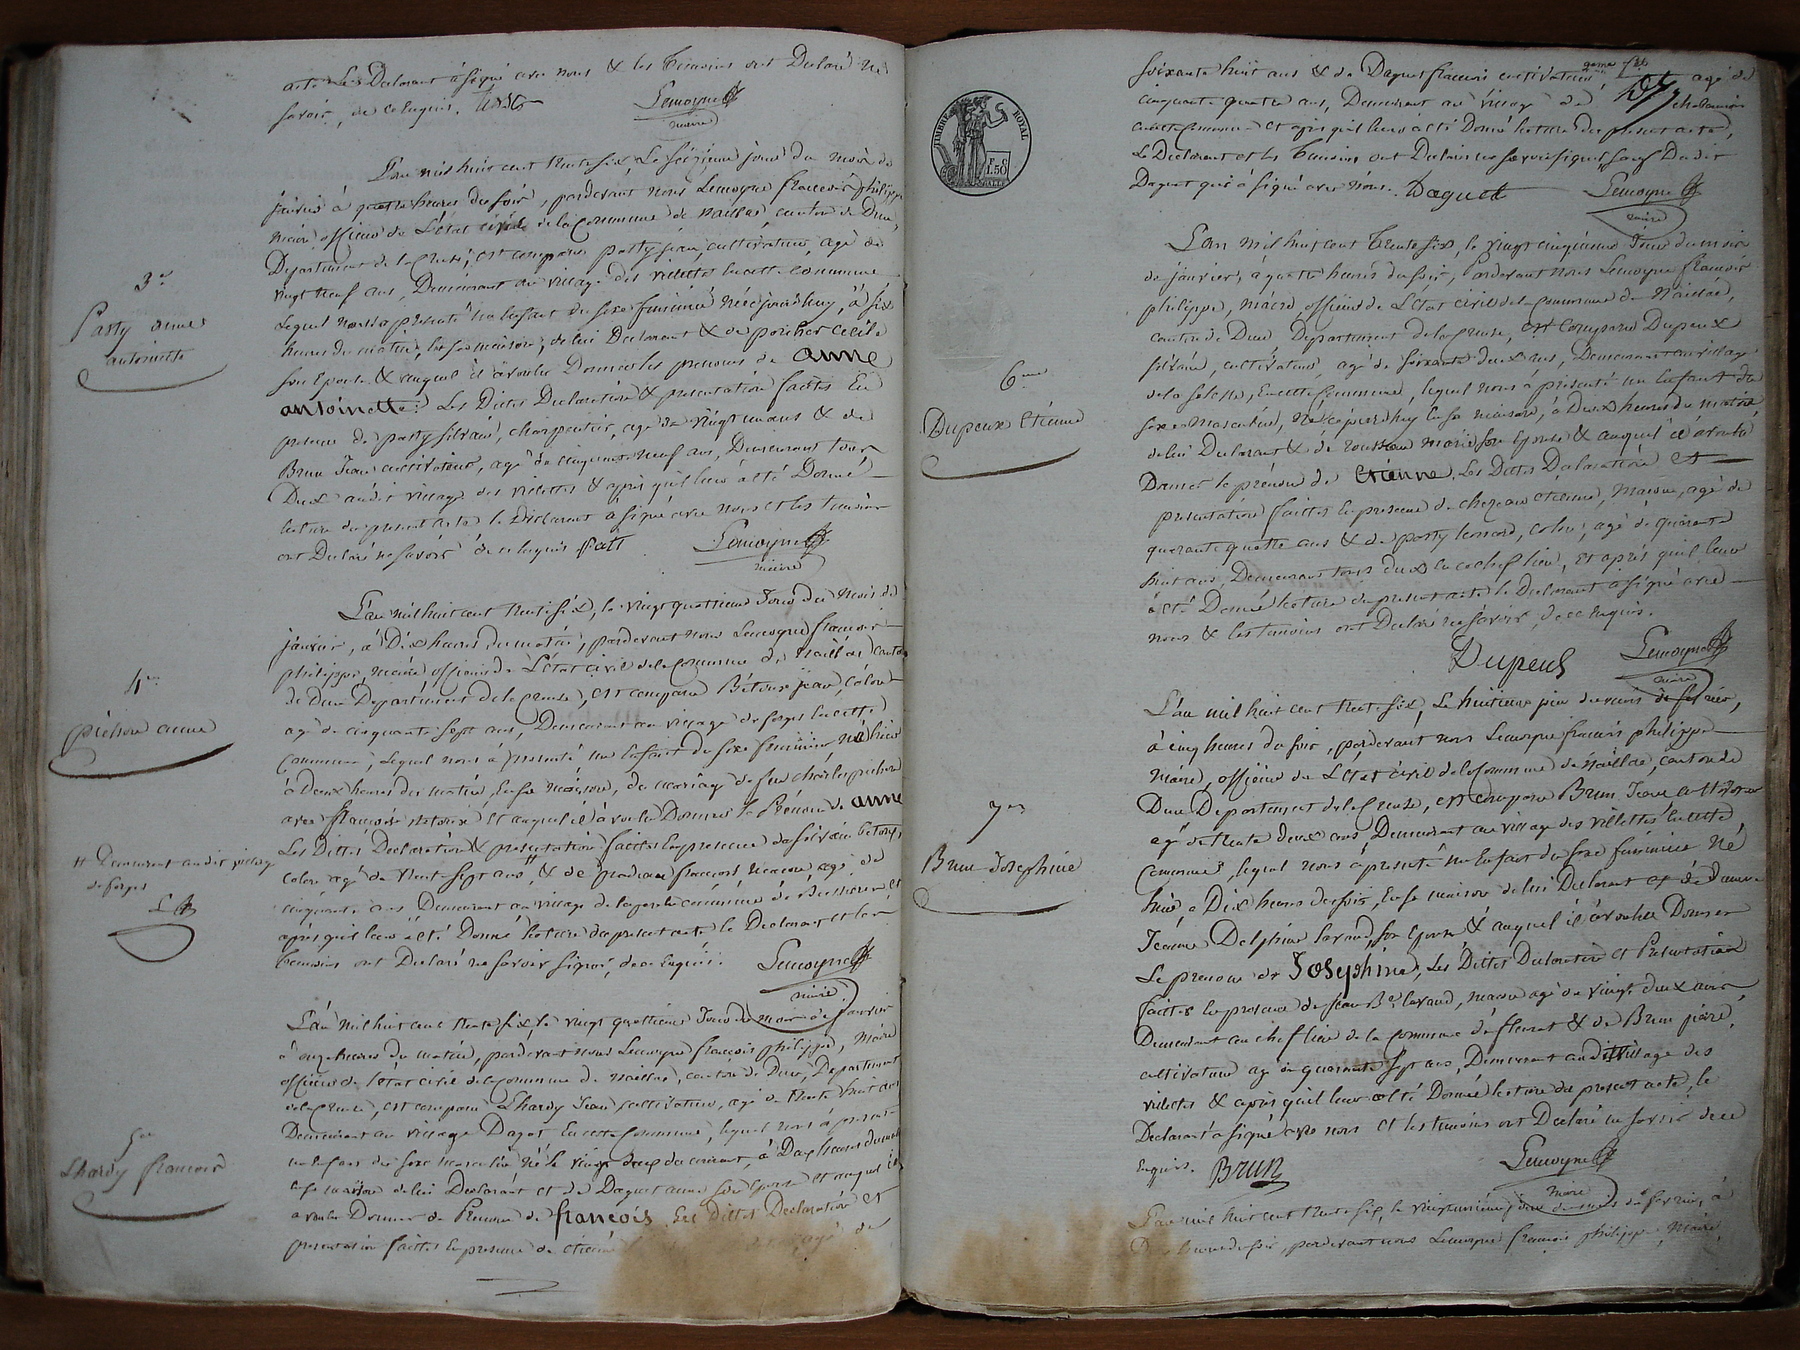 acte Le Declarant à signé avec nous & les temoins ont Declaré ne
savoir, de ce Enquis.
Lemoyne
maire
3e
Pasty anne
antoinette
L'an mil huit cent trente six, Le seizieme jour du mois de
janvier à quatre heures du soir, pardevant nous Lemoyne francois philippe
maire officier de L'état civil de la Commune de naillac, canton de Dun,
Departement de la Creuse, est comparu pasty jean, cultivateur, agé de
vingt neuf ans, Demeurant au village des villettes en cette commune
Lequel nous a presenté un Enfant du sexe feminin née jourdhuy, à six
heures du matin, En sa maison, de lui Declarant & de porcher cecile
son Epouse & auquel il a voulu Donner les prenoms de anne
antoinette. Les Dittes Declaration & presentation faites En
presence de pasty silvain, charpentier, agé de vingt un ans & de
Brun Jean cultivateur, agé de cinquante neuf ans, Demeurant tous
Deux audit village des villettes & après qu'il leur à été Donné
lecture du present acte le Declarant à signé avec nous et les temoins
ont Declaré ne savoir de ce Enquis
Lemoyne
maire
4e
pichon anne
L'an mil huit cent trente six, le vingt quatrieme Jour du mois de
janvier, à Dix heures du matin, pardevant nous Lemoyne francois
philippe, maire officier de L'état civil de la Commune de Naillac canton
de Dun Departement de la Creuse, est comparu Bétoux jean, colon
agé de cinquante sept ans, Demeurant au village de forges En cette
Commune, Lequel nous à presenté, un Enfant du sexe feminin né hier
à Deux heures du matin, En sa maison, du mariage de feu charles pichon
avec francoise et auquel il à voulu Donner le Prénom de anne
Les Dittes Declaration & presentation faites En presence de silvain betoux,
colon agé de Vingt sept ans, & de francois macon, agé de
cinquante ans Demeurant au village de commune de et
après qu'il leur à été Donné lecture du present acte le Declarant et les
temoins ont Declaré ne savoir signer, de ce Enquis.
Lemoyne
maire
Demeurant audit village
de forges
L
5e
Lhardy francois
L'an mil huit cent trente six, le vingt quatrieme Jour du mois de janvier
à onze heures du matin, pardevant nous Lemoyne françois philippe, maire
officier de l'état civil de la Commune de Naillac, canton de Dun, Departement
de la Creuse, est comparu Lhardy Jean cultivateur, agé de trente huit ans
Demeurant au village Dagot, En cette Commune, lequel nous à presenté
un Enfant du sexe masculin né le vingt deux du courant, à Dix heures du matin
En sa maison de lui Declarant et de Daguet anne son Epouse et auquel il
a voulu Donner de Prenom de françois. Les Dittes Declaration et
presentation faittes En presence de etienne agé de
soixante huit ans & de Daguet francois cultivateur agé de
cinquante quatre ans, Demeurant au village de
cette Commune et après qu'il leur à été Donné lecture du present acte,
Le Declarant et les temoins ont Declaré ne savoir signer, sauf Du dit
Daguet qui à signé avec nous. Daguet
Lemoyne
maire
TIMBRE ROYAL
1.50
6me
Dupeux Etienne
L'an mil huit cent trente six, le vingt cinquieme Jour du mois
de janvier, à quatre heures du soir, Pardevant nous Lemoyne francois
philippe, maire, officier de L'état civil de la Commune de Naillac,
canton de Dun, Departement de la Creuse, Est Comparu Dupeux
silvain, cultivateur, agé de soixante deux ans, Demeurant au village
de la En cette Commune, lequel nous à présenté un Enfant du
sexe masculin, Né ce jourdhuy En sa maison, à Deux heures du matin
de lui Declarant & de rousseau marie son Epouse & auquel il à voulu
Donner le prénom de Etienne, Les Dittes Declaration et
présentation faittes En presence de chezeau etienne, Macon, agé de
quarante quatre ans & de pasty leonard, colon, agé de quarante
huit ans, Demeurant tous deux En ce chef lieu, Et après qu'il leur
à été Donné lecture du present acte le Declarant à signé avec
nous & les temoins ont Declaré ne savoir, de ce Enquis.
Dupeux
Lemoyne
maire
7me
Brun Josephine
L'an mil huit cent trente six, Le huitieme jour du mois de fevrier,
à cinq heures du soir, pardevant nous Lemoyne francois philippe
Maire, officier de L'état civil de la Commune de Naillac, canton de
Dun Departement de la Creuse, est comparu Brun Jean cultivateur
agé de trente deux ans, Demeurant au village des villettes En cette
Commune, lequel nous à presenté un Enfant du sexe feminin Né
hier, à Dix heures du soir, En sa maison de lui Declarant et de Dame
Jeanne Delphine lavaud, son Epouse & auquel il à voulu Donner
Le prenom de Josephine, Les Dittes Declaration et Presentation
faites En presence de jean Bte lavaud, macon agé de vingt deux ans
Demeurant au chef lieu de la Commune de fleurat & de Brun pierre,
cultivateur agé de quarante sept ans, Demeurant audit village des
villettes & après qu'il leur à été Donné lecture du present acte, le
Declarant à signé avec nous et les temoins ont Declaré ne savoir de ce
Enquis. Brun
Lemoyne
maire
L'an mil huit cent trente six, le vingt unieme jour du mois de fevrier, à
heures du soir, pardevant nous Lemoyne francois philippe, Maire,